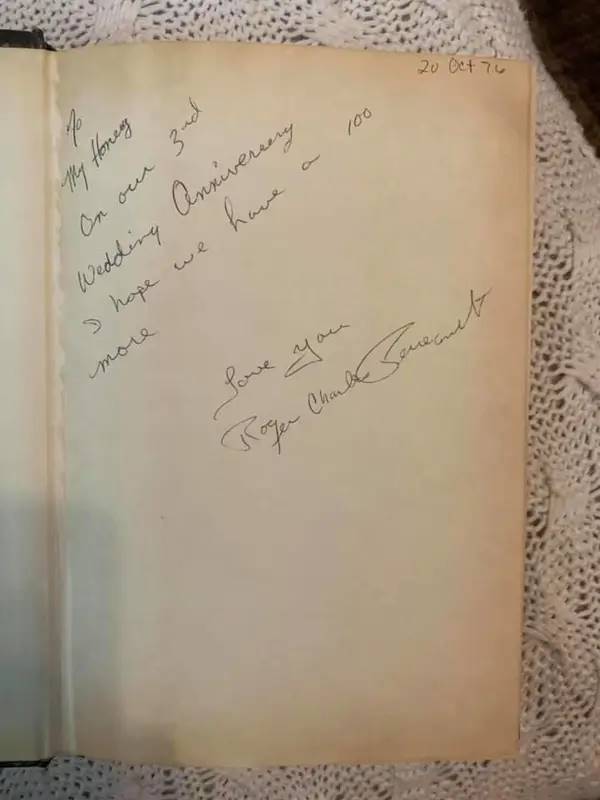 20 Oct 76
To
My Honey
On our 3rd
Wedding Anniversery
I hope we have a 100
more
Love you
Roger Charles